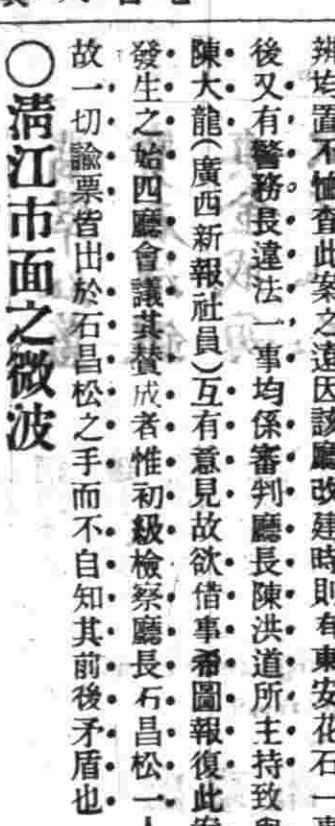 辨均置不恤查此案之遠因該廳改建時則有東安花石一
後又有警務長違法一事均係審判廳長陳洪道所主持致
陳大龍(廣西新報社員)互有意見故欲借事希圖報復此
發生之始四廳會議其贊成者惟初級檢察廳長石昌松一
故一切諭票皆出於石昌松之手而不自知其前後矛盾也
○淸江市面之微波